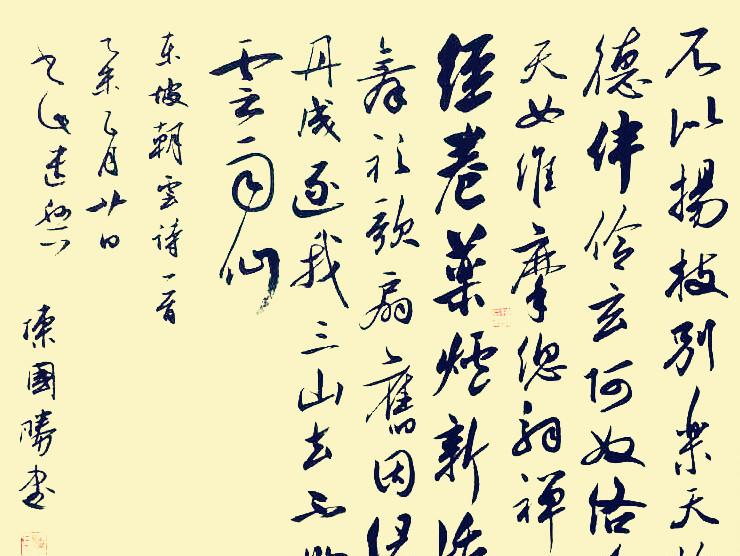 不似揚枝别樂天
德伴伶玄阿奴络
天女維摩總解禅
經卷藥爐新活
舞衫歌扇舊因
丹成逐我三山去不
雲雨仙
東坡朝雲诗一首
乙未七月廿日
國勝書